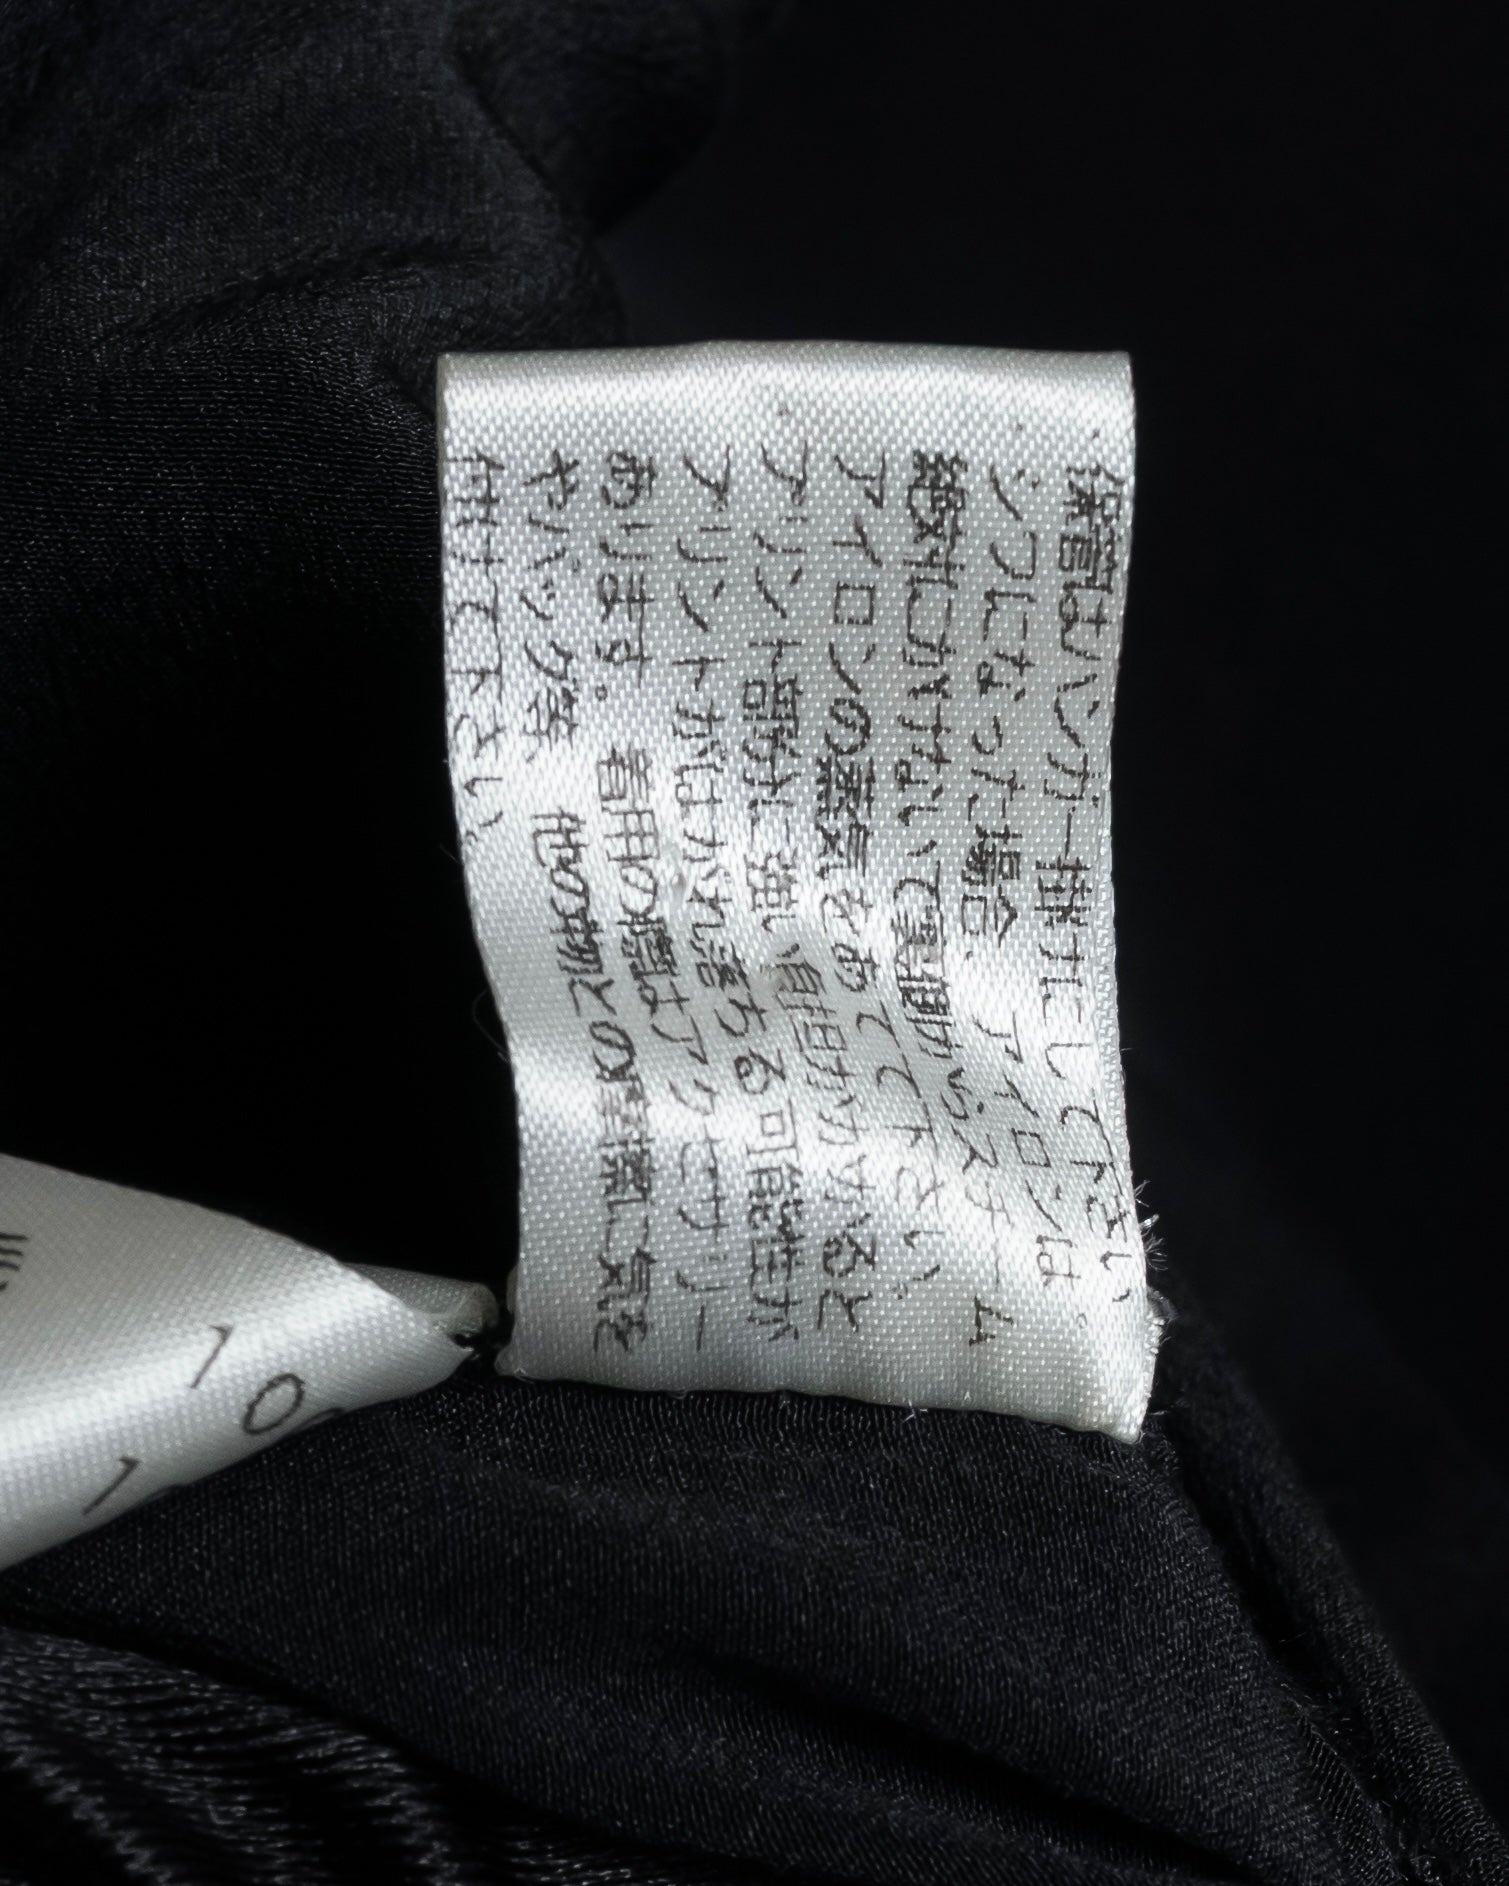 保管はハンガー掛けにして下さい、
シワになった場合、アイロンは
絶対にかけないで裏面からスチーム
アイロンの蒸気をあてて下さい、
プリント部分に強い負担がかかると
プリントがはがれ落ちる可能性が
あります。着用の際はアクセサリー
やバッグ等、他のものとの摩擦に気を
付けて下さい、
100
1